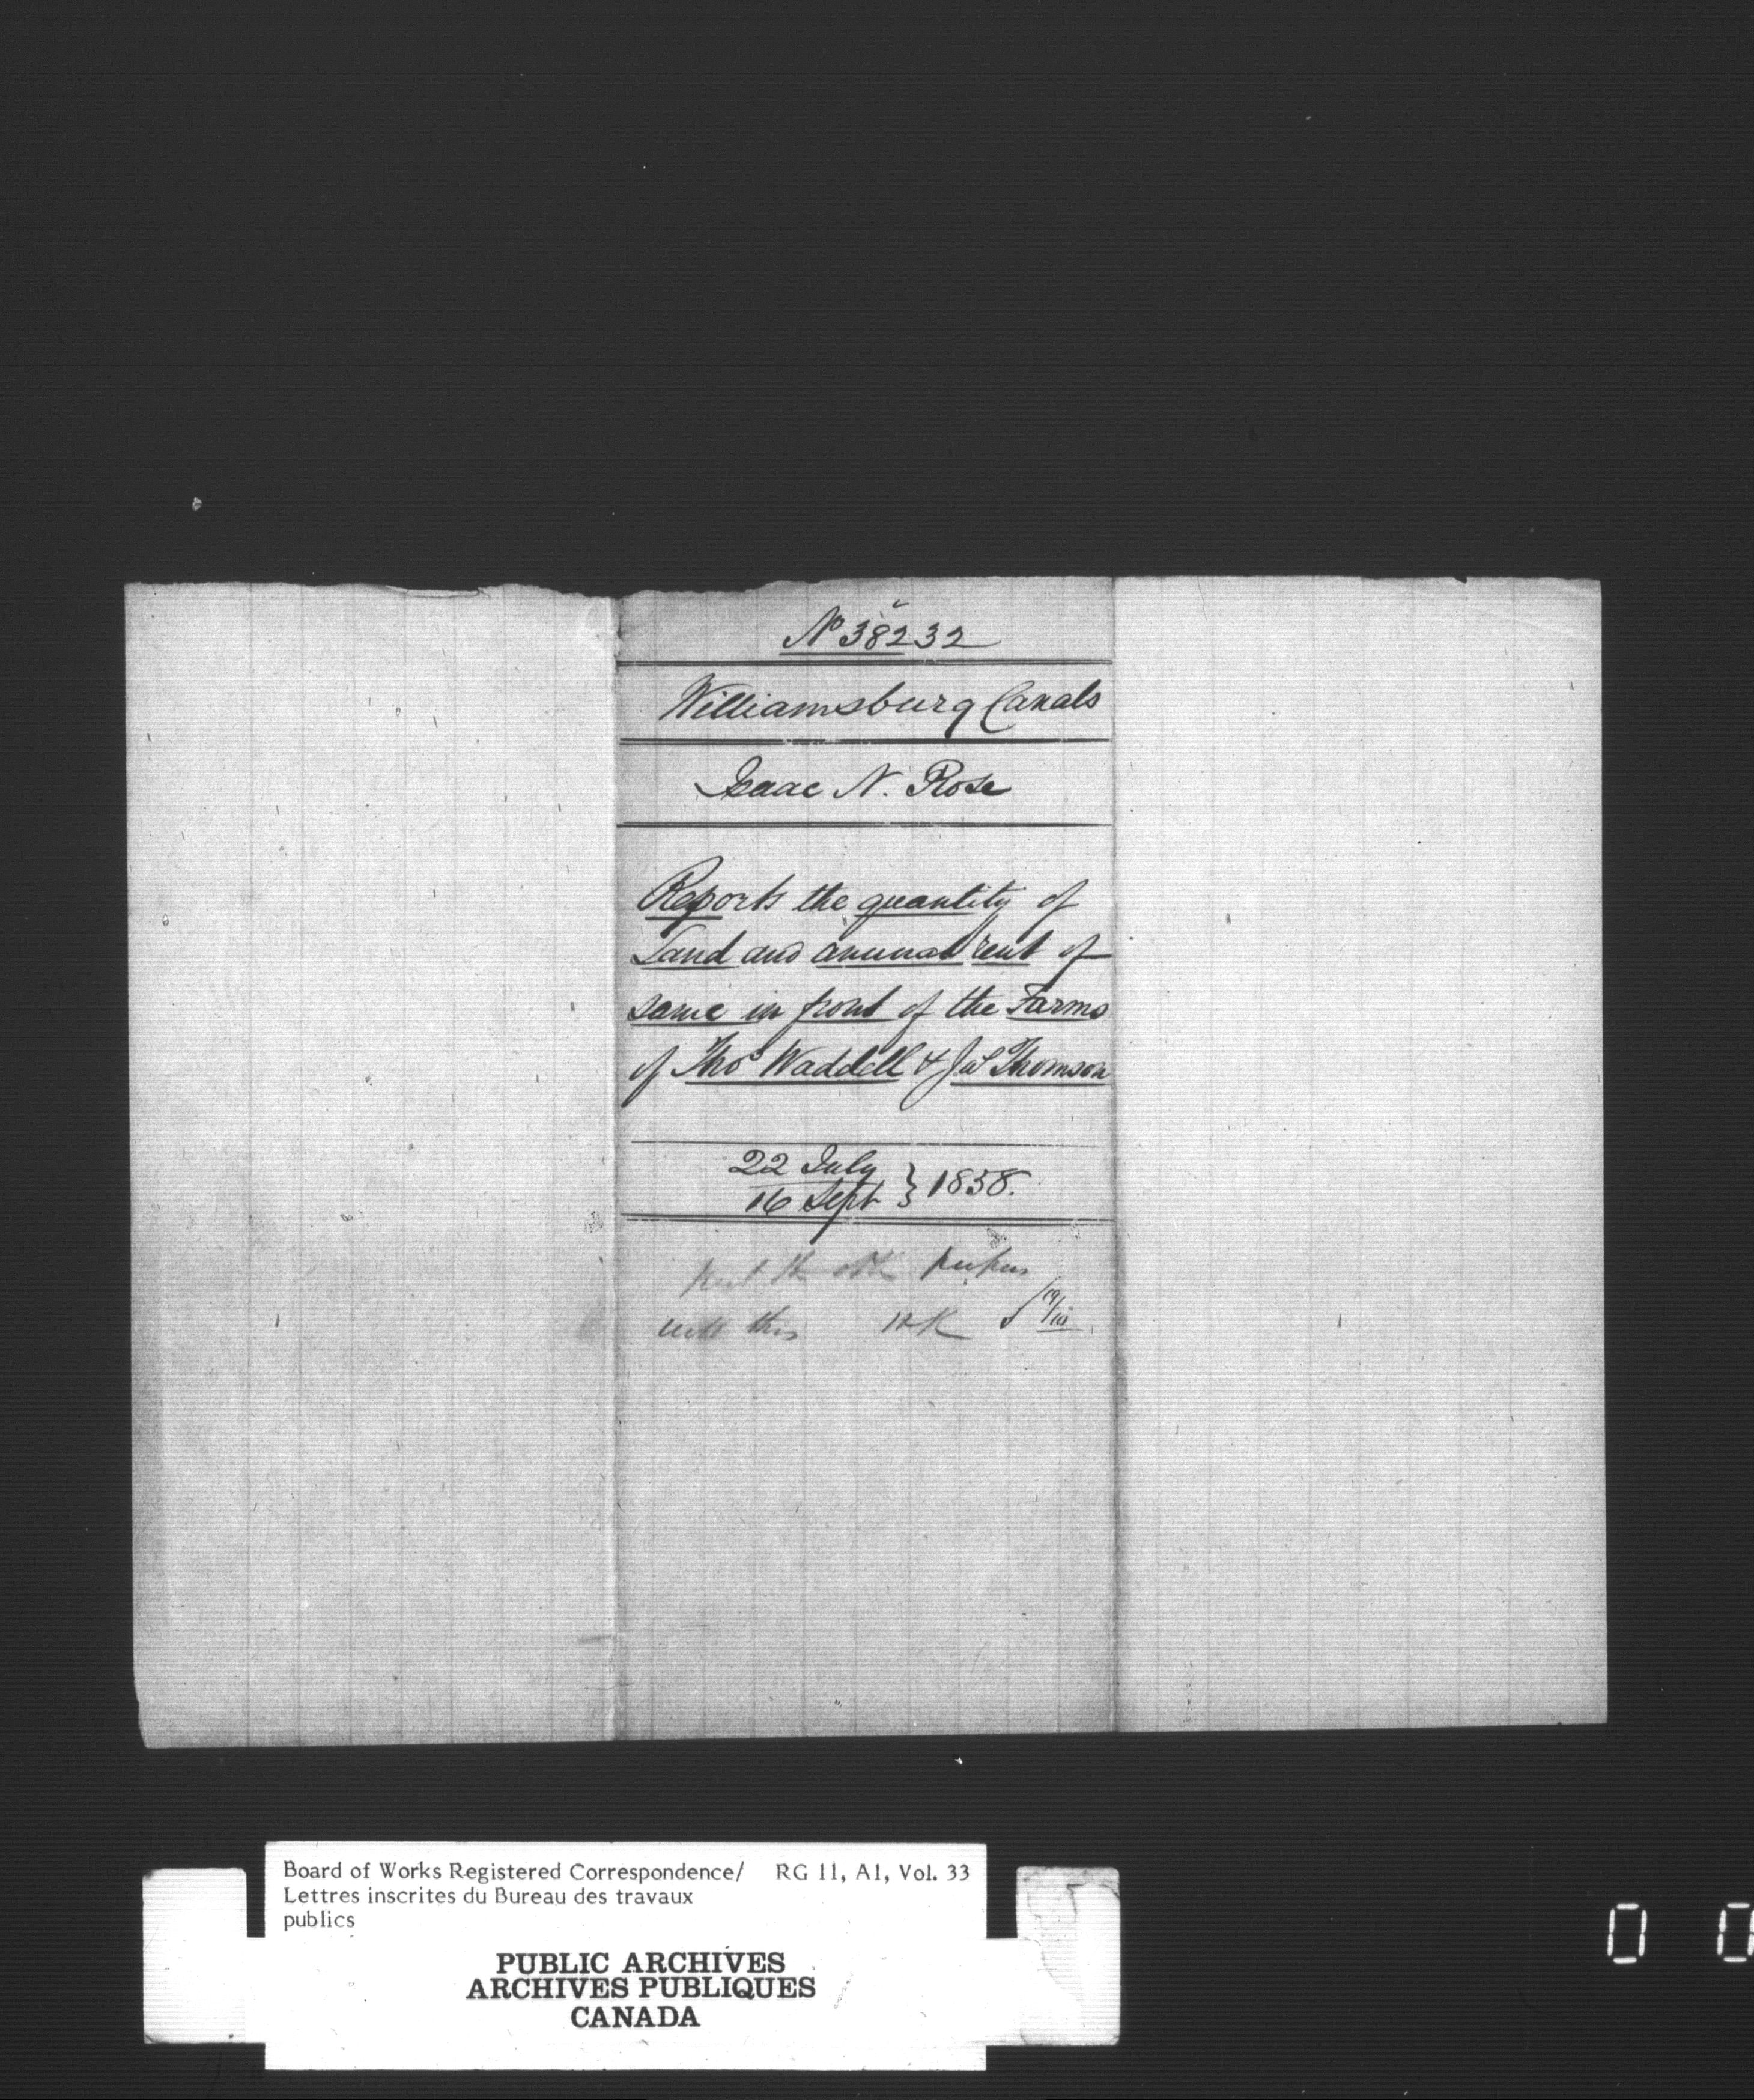 No 38232
Williamsburg Canals
Isaac N. Rose
Reports the quantity of
Land and annual rent of
same in front of the Farms
of Thos Waddell & Jas Thomson
22 July
16 Sept } 1858.
put the other papers
with this HHK 19/10
Board of Works Registered Correspondence/ RG 11, A1, Vol. 33
Lettres inscrites du Bureau des travaux
publics
PUBLIC ARCHIVES
ARCHIVES PUBLIQUES
CANADA
0 0